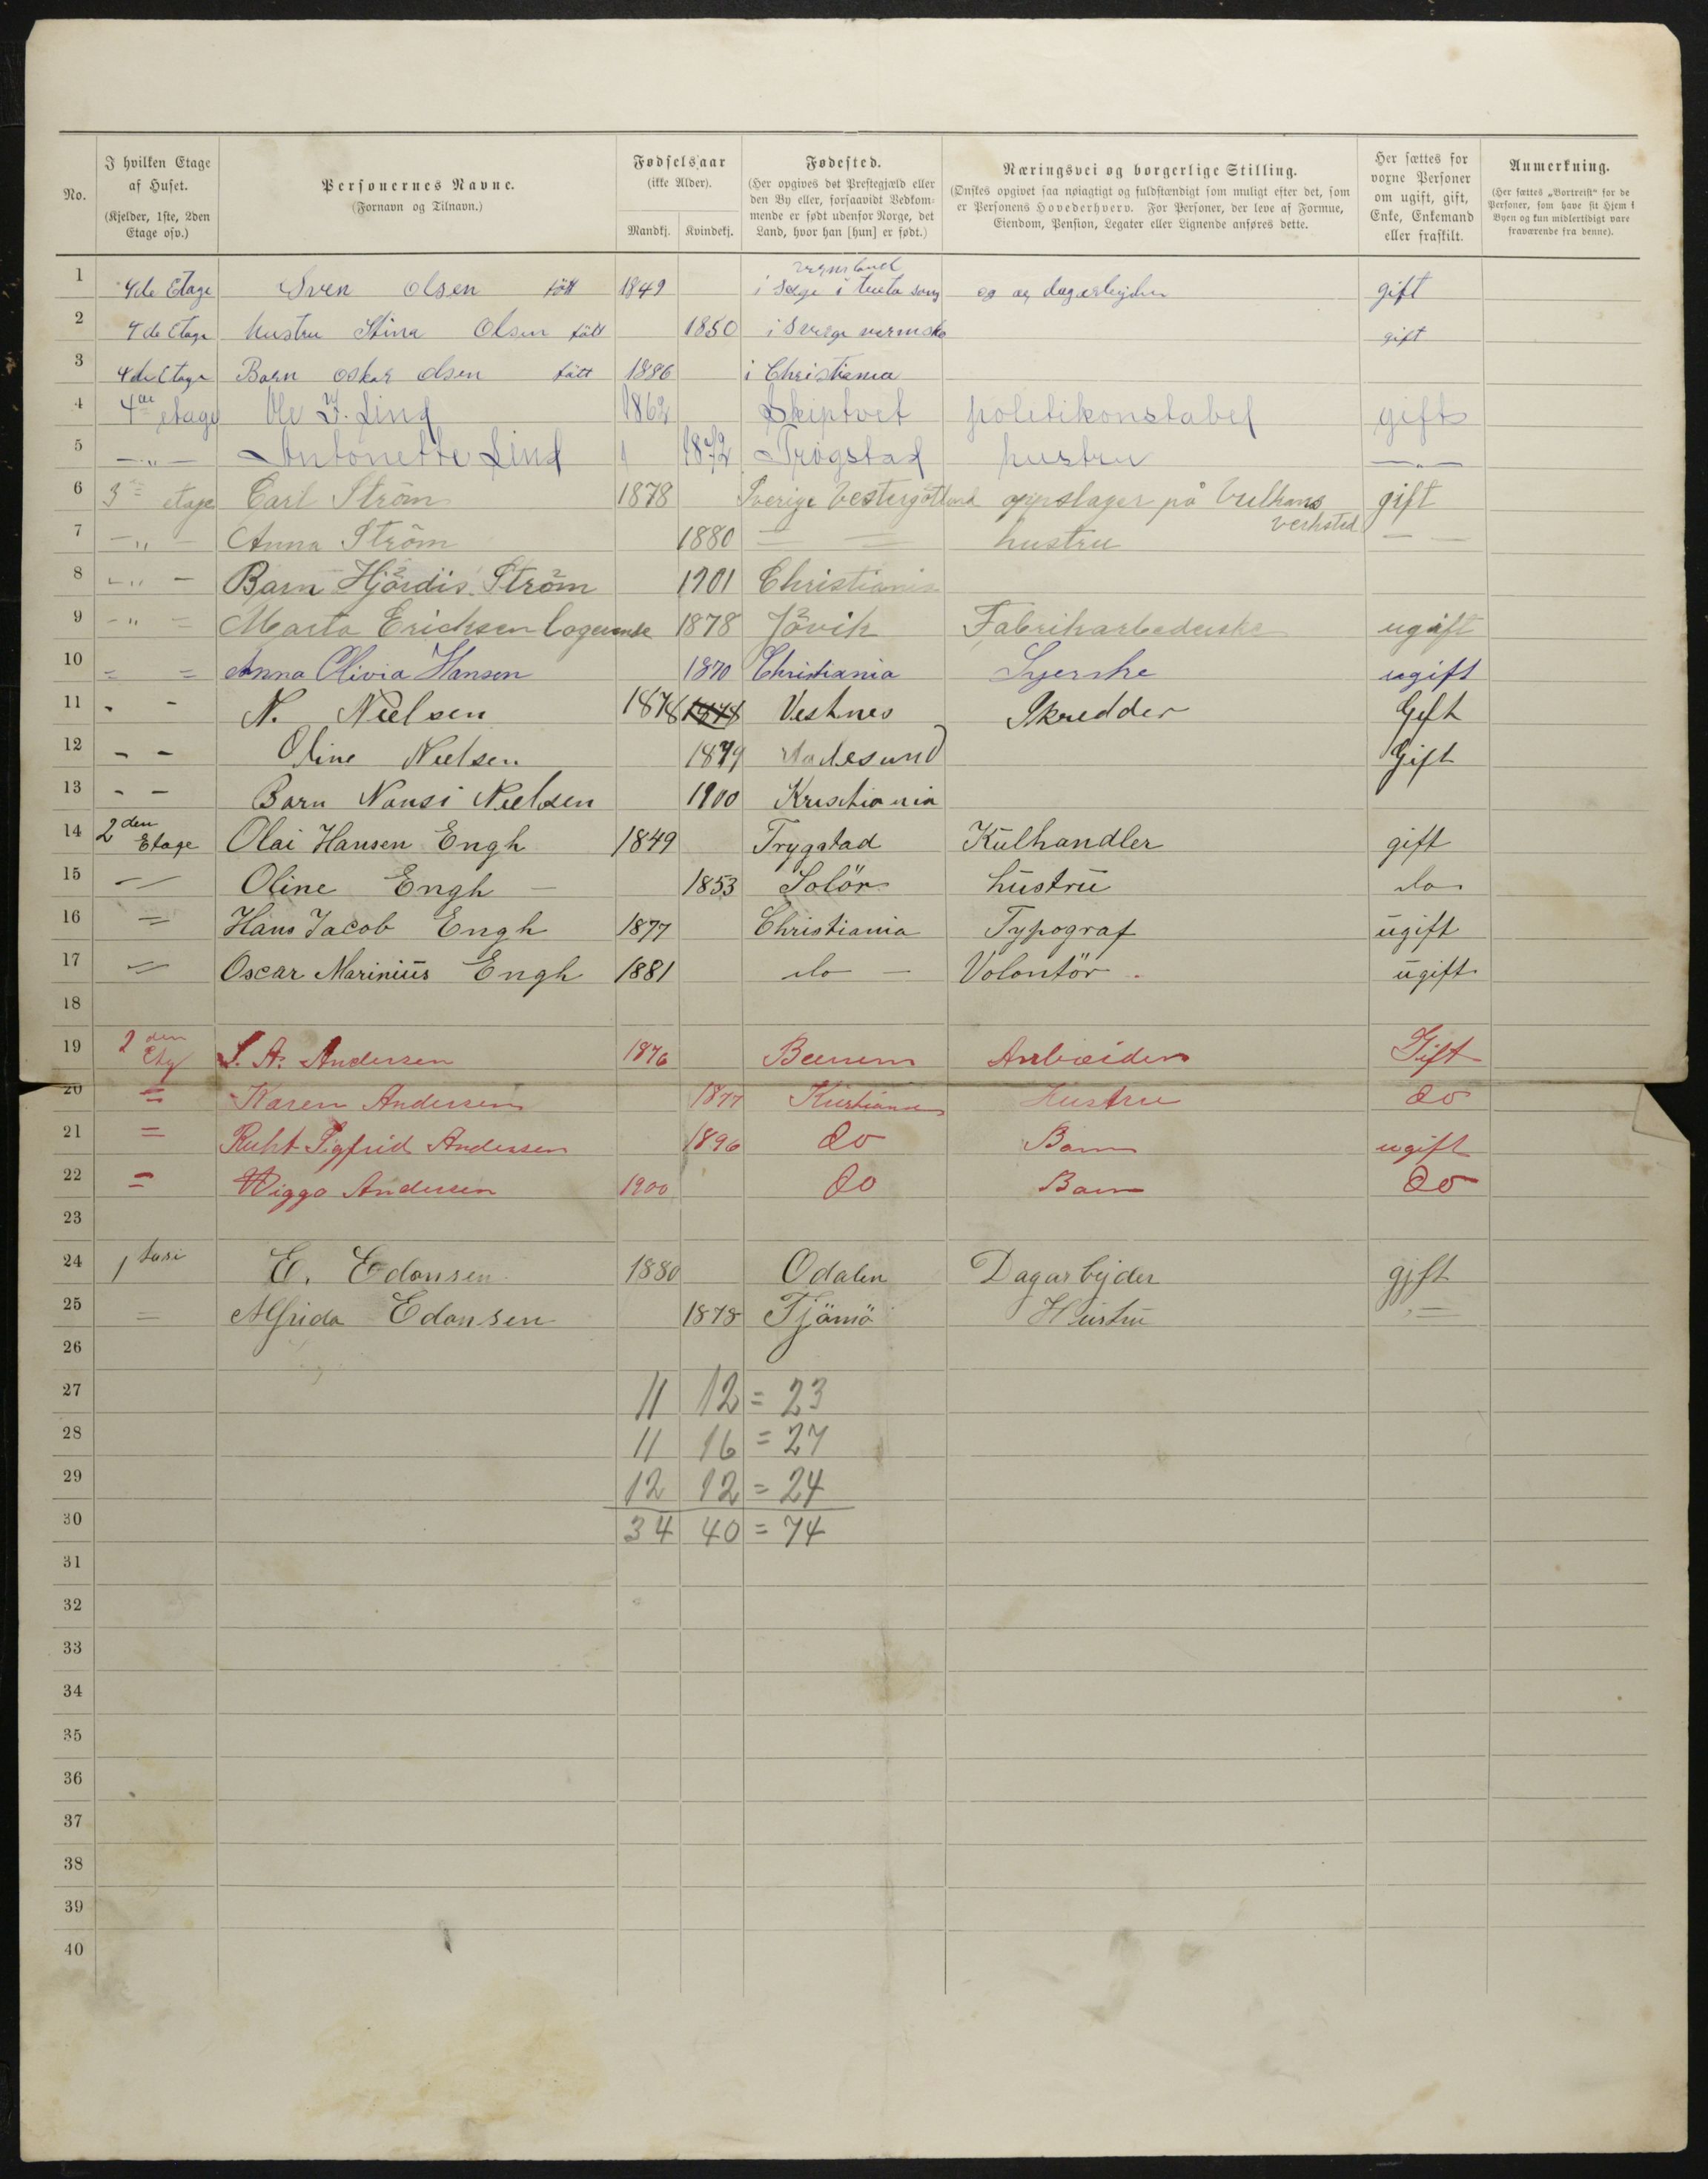 No.
I hvilken Etage af Huset. (Kjelder, 1ste, 2den Etage osv.)
Personernes Navne. (Fornavn og Tilnavn.)
Fødselsaar (ikke Alder). Mandkj. Kvindekj.
Fødested. (Her opgives det Prestegjæld eller den By eller, forsaavidt Vedkommende er født udenfor Norge, det Land, hvor han [hun] er født.)
Næringsvei og borgerlige Stilling. (Ønskes opgivet saa nøiagtigt og fuldstændigt som muligt efter det, som er Personens Hovederhverv. For Personer, der leve af Formue, Eiendom, Pension, Legater eller Lignende anføres dette.
Her sættes for voxne Personer om ugift, gift, Enke, Enkemand eller fraskilt.
Anmerkning. (Her sættes „Bortreist“ for de Personer, som have sit Hjem i Byen og kun midlertidigt vare fraværende fra denne).
1 4de Etage Sven olsen fött 1849 i og dagarbejder gift
2 4de Etage hustru Stina Olsen fött 1850 i Sverge gift
3 4de Etage Barn oskar olsen fött 1886 i Christiania
4 4de etage Ole J. Lind 1862 Skiptvet politikonstabel gift
5 — " — Antonette Lind 1872 Trögstad hustru — " —
6 3 etage Carl Ström 1878 Sverige Vestergötland oppslager på Vulkans Verksted gift
7 — " — Anna Ström 1880 — — hustru — —
8 — " — Barn Hjördis Ström 1901 Christiania
9 — " — Marta Ericksen logerende 1878 Jövik Fabrikarbederske ugift
10 = = Anna Olivia Hansen 1870 Christiania Syerske ugift
11 - - N. Nielsen 1878 Vestnes Skredder Gift
12 - - Oline Nielsen 1879 Aalesund Gift
13 - - Barn Nansi Nielsen 1900 Kristiania
14 2den Etage Olai Hansen Engh 1849 Trygstad Kulhandler gift
15 — Oline Engh — 1853 Solör hustru do
16 = Hans Jacob Engh 1877 Christiania Typograf ugift
17 = Oscar Marinius Engh 1881 do — Volontör ugift
18
19 2den Etg A. Andersen 1876 Beerum Arbeider Gift
20 = Karen Andersen 1877 Kristiania Hustru do
21 = Ruht Sigfrid Andersen 1896 do Barn ugift
22 = Wiggo Andersen 1900 do Barn do
23
24 1 E. Edonsen 1880 Odalen Dagarbejder gift
25 = Alfrida Edonsen 1878 Tjömö Hustru =
26
27 11 12 = 23
28 11 16 = 27
29 12 12 = 24
30 34 40 = 74
31
32
33
34
35
36
37
38
39
40